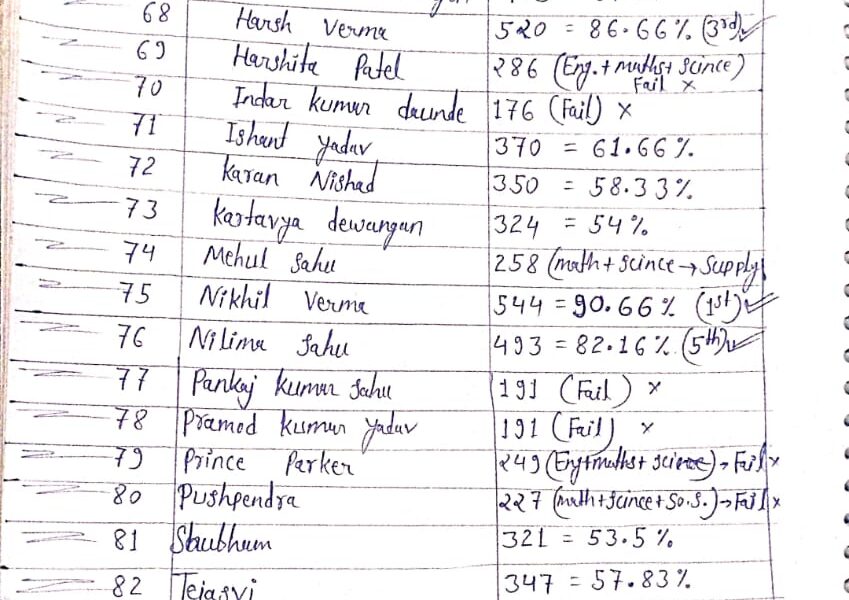 68 Harsh Verma 520 = 86.66% (3rd)
69 Harshita Patel 286 (Eng.+maths+scince) Fail ×
70 Indar kumar daunde 176 (Fail) ×
71 Ishant yadav 370 = 61.66%
72 Karan Nishad 350 = 58.33%
73 Kartavya dewangan 324 = 54%
74 Mehul Sahu 258 (math+scince→Supply
75 Nikhil Verma 544 = 90.66% (1st)
76 Nilima Sahu 493 = 82.16% (5th)
77 Pankaj kumar Sahu 191 (Fail) ×
78 Pramod kumar yadav 191 (Fail) ×
79 Prince Parker 249 (Eng+maths+scince)→Fail ×
80 Pushpendra 227 (math+scince+So.S.)→Fail ×
81 Shubham 321 = 53.5%
82 Tejasvi 347 = 57.83%